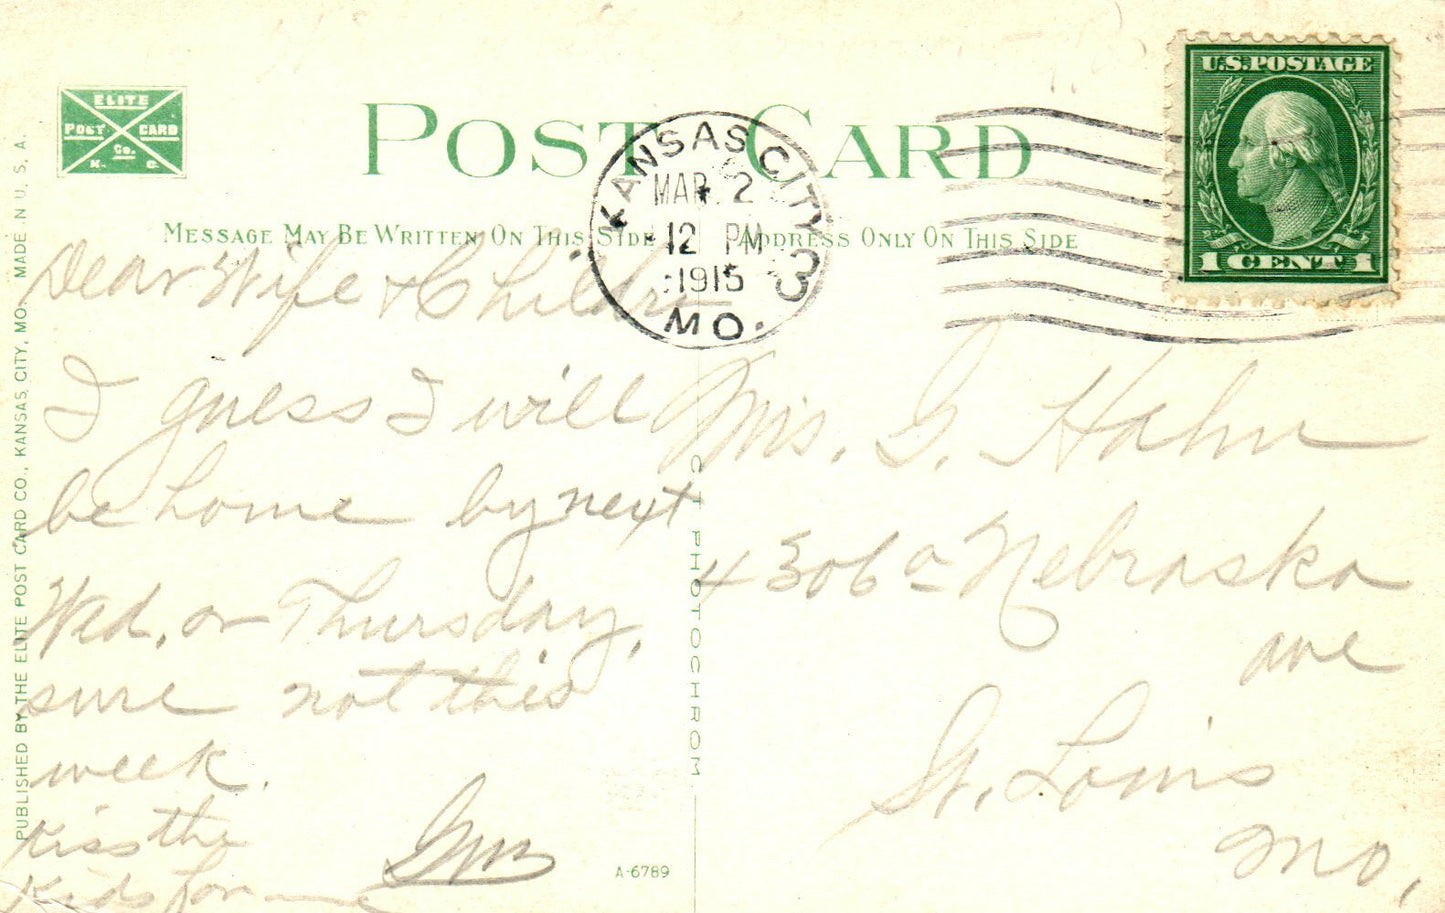 ELITE
POST CARD
Co.
K. C.
POST CARD
MESSAGE MAY BE WRITTEN ON THIS SIDE
ADDRESS ONLY ON THIS SIDE
KANSAS CITY
MAR 2
12 PM
1915
MO.
3
U.S. POSTAGE
1 CENT 1
Dear Wife & Childrn
I guess I will
be home by next
Wed. or Thursday,
sure not this
week.
Kiss the
Kids for
Mrs. G. Hahn
4306a Nebraska
ave
St. Louis
Mo.
C T PHOTOCHROM
A-6789
PUBLISHED BY THE ELITE POST CARD CO., KANSAS CITY, MO. MADE IN U. S. A.